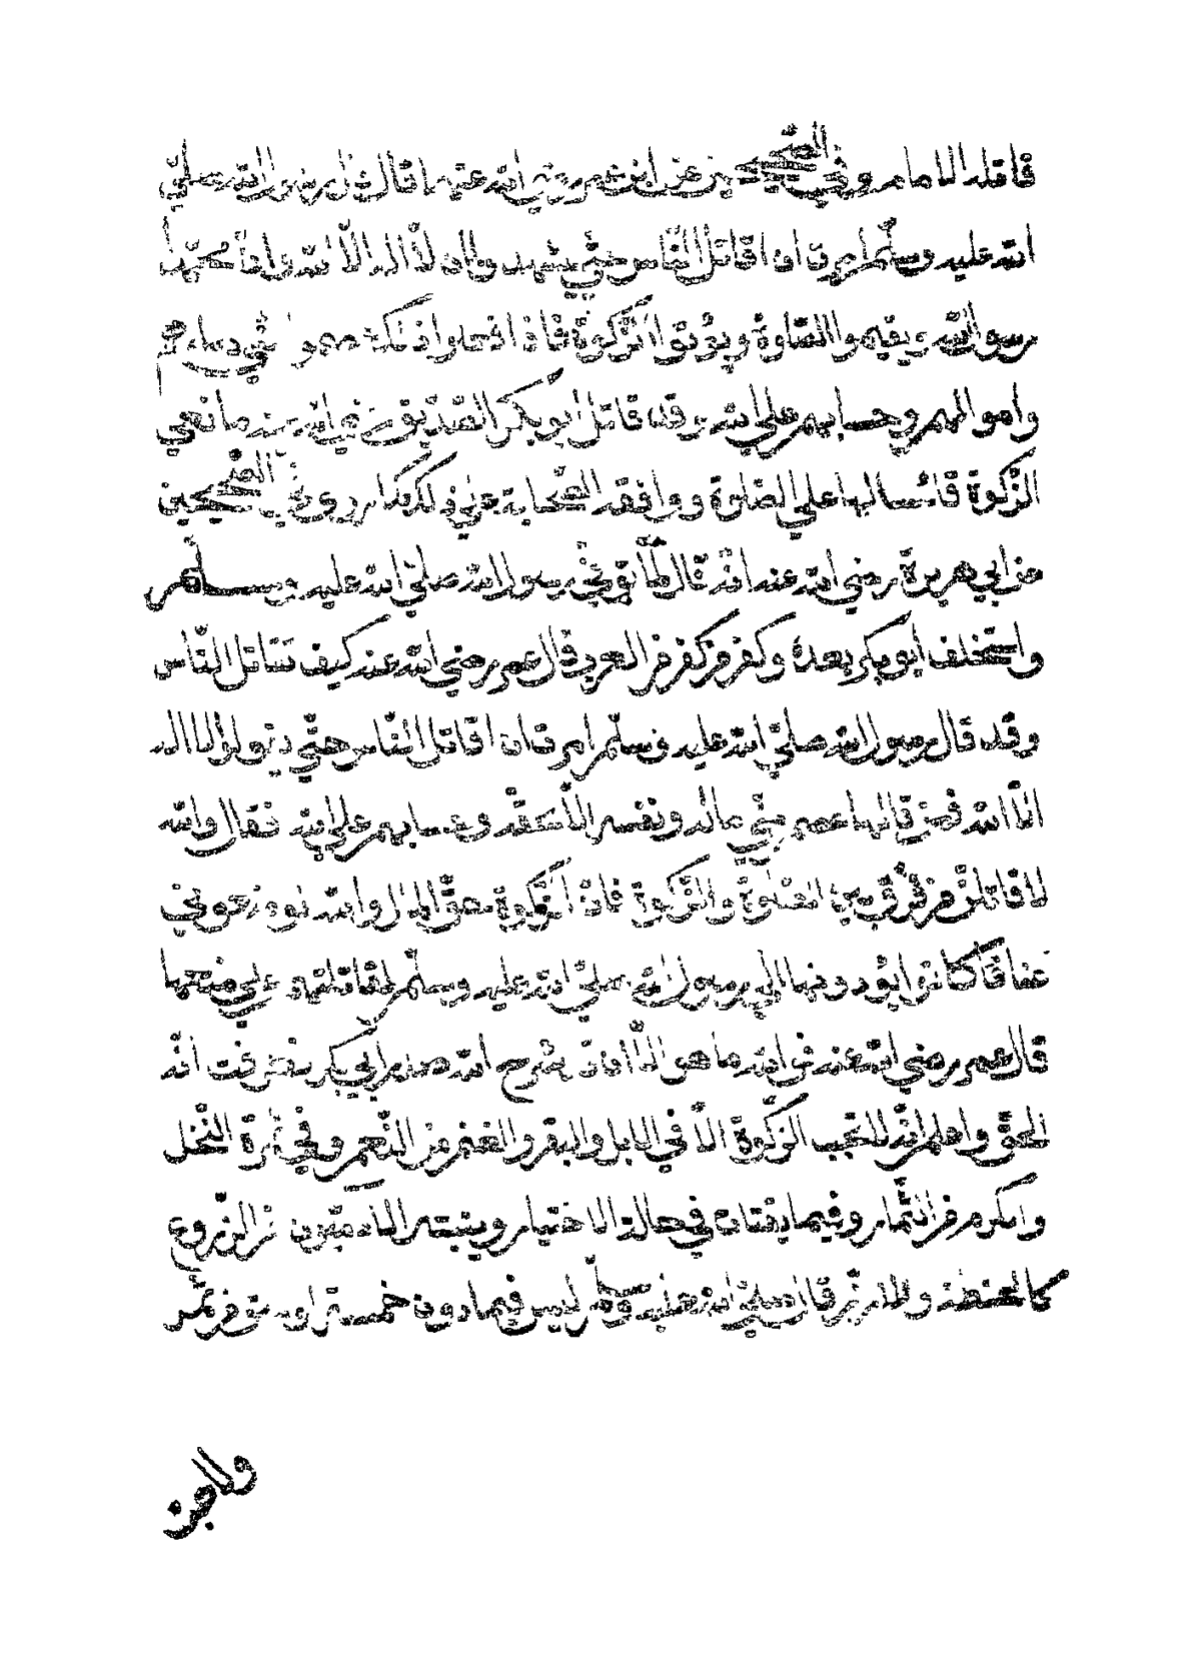 قاتله الامام وفي الصحيحين عن ابن عمر رضي الله عنهما قال قال رسول الله صلى
الله عليه وسلم امرت ان اقاتل الناس حتى يشهدوا ان لا اله الا الله وان محمدا
رسول الله ويقيموا الصلوة ويؤتوا الزكوة فاذا فعلوا ذلك عصموا مني دماءهم
واموالهم وحسابهم على الله وقد قاتل ابو بكر الصديق رضي الله عنه مانعي
الزكوة قائسا لها على الصلوة ووافقه الصحابة على ذلك كذا روي في الصحيحين
عن ابي هريرة رضي الله عنه انه قال لما توفي رسول الله صلى الله عليه وسلم
واستخلف ابو بكر بعده وكفر من كفر من العرب قال عمر رضي الله عنه كيف تقاتل الناس
وقد قال رسول الله صلى الله عليه وسلم امرت ان اقاتل الناس حتى يقولوا لا اله
الا الله فمن قالها عصم مني ماله ونفسه الا بحقه وحسابهم على الله فقال والله
لاقاتلن من فرق بين الصلوة والزكوة فان الزكوة حق المال والله لو منعوني
عناقا كانوا يؤدونها الى رسول الله صلى الله عليه وسلم لقاتلتهم على منعها
قال عمر رضي الله عنه فوالله ما هو الا ان شرح الله صدر ابي بكر فعرفت انه
الحق واعلم انه لا تجب الزكوة الا في الابل والبقر والغنم من النعم وفي ثمرة النخل
والكرم من الثمار وفيما يقتات في حالة الاختيار وينبته الادميون من الزروع
كالحنطة والارز قال صلى الله عليه وسلم ليس فيما دون خمسة اوسق من تمر
ولا من